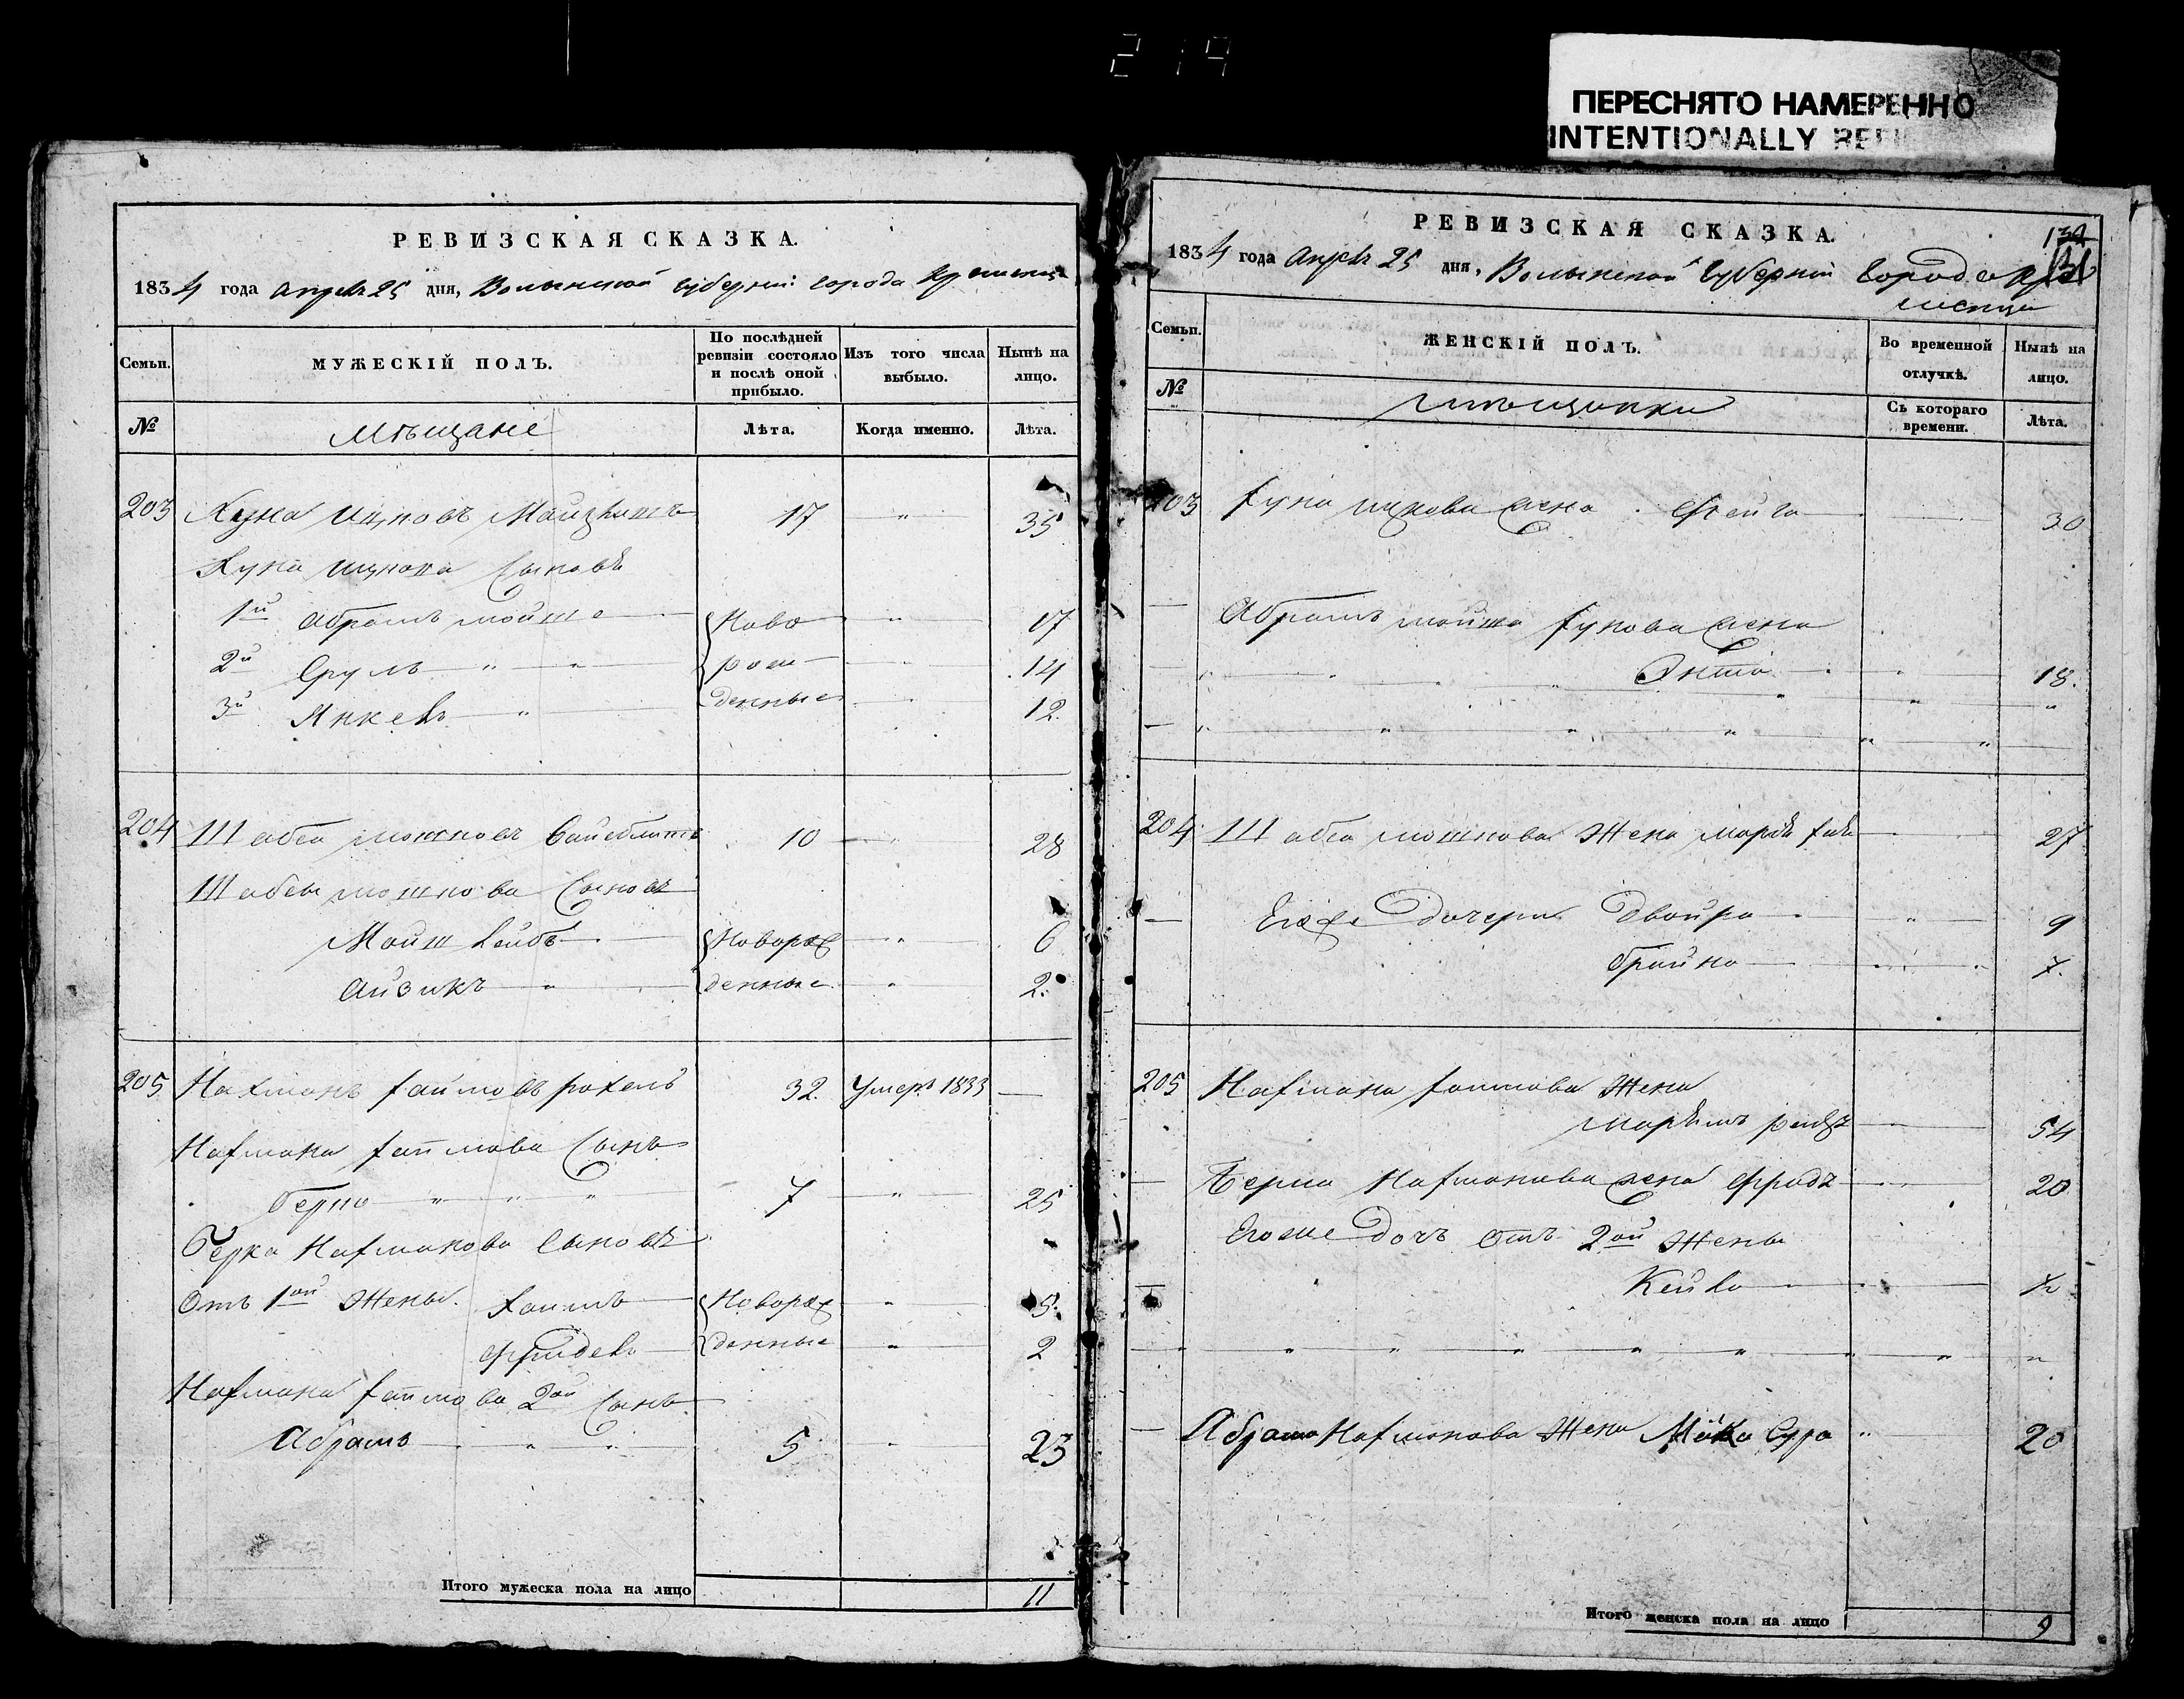 219
ПЕРЕСНЯТО НАМЕРЕННО
INTENTIONALLY
РЕВИЗСКАЯ СКАЗКА.
1834 года апрель 25 дня, Волынской губернии города Кременца
Семьи.
МУЖЕСКІЙ ПОЛЪ.
По послѣдней ревизіи состояло и послѣ оной прибыло.
Изъ того числа выбыло.
Нынѣ на лицо.
№
Мѣщане
Лѣта.
Когда именно.
Лѣта.
203 Ицковъ 17 " 35
Хуна Ицкова Сыновѣ
1й Абрамъ Мойше Ново " 17
2й Сруль " " рож 14
3й Янкель " денные 12
204 Шабса Мошковъ 10 " 28
Шабсы Мошкова Сыновѣ
Мойш Лейбъ Новорож " 6
Айзикъ " денные " 2
205 Нахманъ Хаймовъ 32 Умеръ 1833 —
Нахмана Хаймова Сынъ
Берко " " " 7 " 25
Берка Нахманова Сыновѣ
Отъ 1ой Жены Хаимъ Новорож " 5
денные " 2
Нахмана Хаймова 2ой Сынъ
Абрамъ " " 5 " 23
Итого мужеска пола на лицо 11
РЕВИЗСКАЯ СКАЗКА.
134
131
1834 года апрель 25 дня, Волынской Губерніи Города Кре
менца
Семьи.
ЖЕНСКІЙ ПОЛЪ.
Во временной отлучкѣ.
Нынѣ на лицо.
№
Мѣщанки
Съ котораго времени.
Лѣта.
203 Хуна Ицкова жена Фейга 30
Абрамъ Мойша Хунова жена
Энта 18
204 Шабса Мошкова Жена 27
Егоже Дочери Двойра " 9
Брайна 7
205 Нахмана Хаймова Жена
54
Берка Нахманова жена 20
Егоже Дочь Отъ 2ой Жены
Кейла
Абрама Нахманова Жена Сура " 20
Итого женска пола на лицо 9